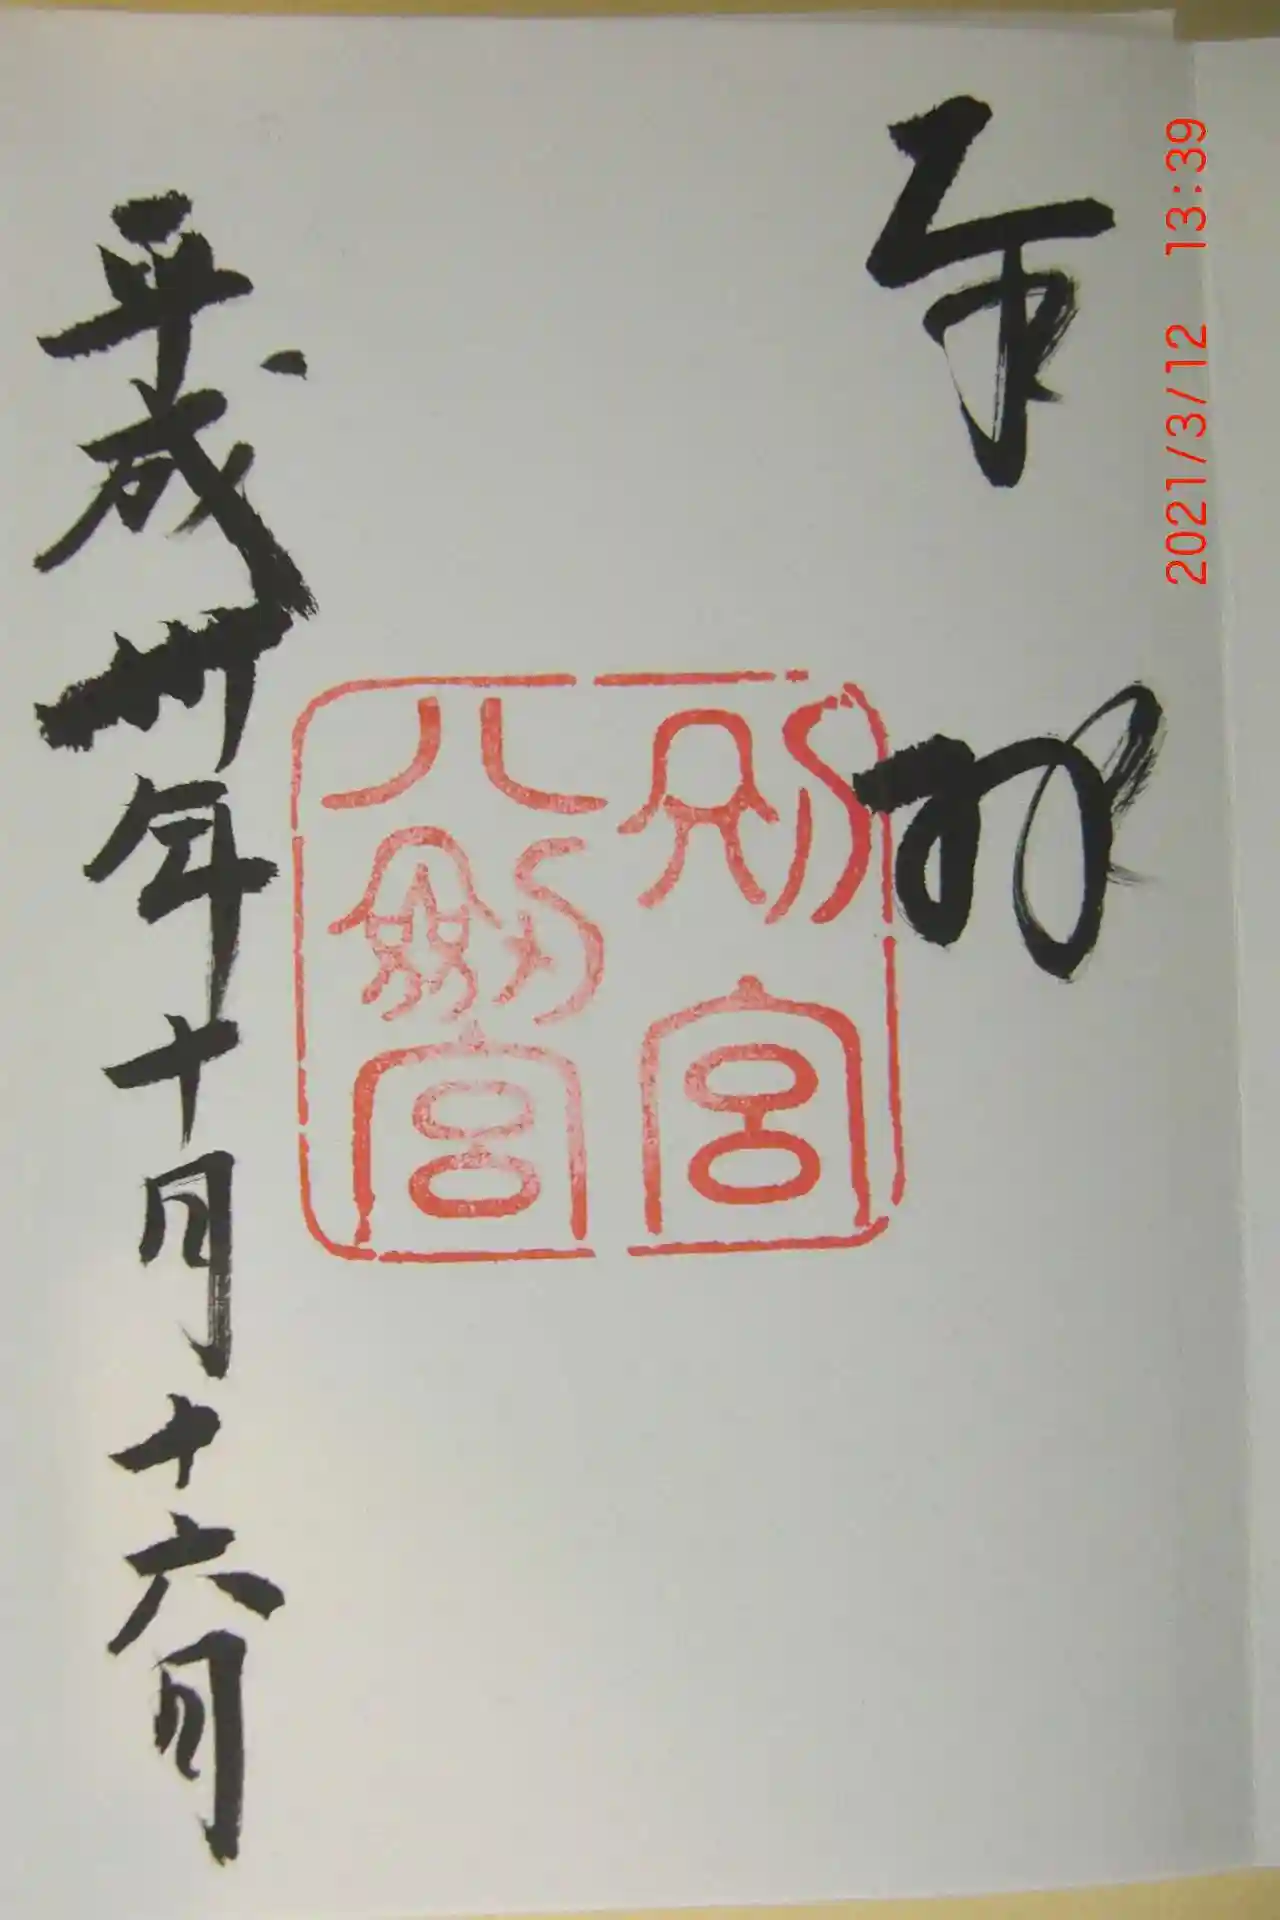 2021/3/12 13:39
奉拝
別宮
八劔宮
平成卅年十月十六日